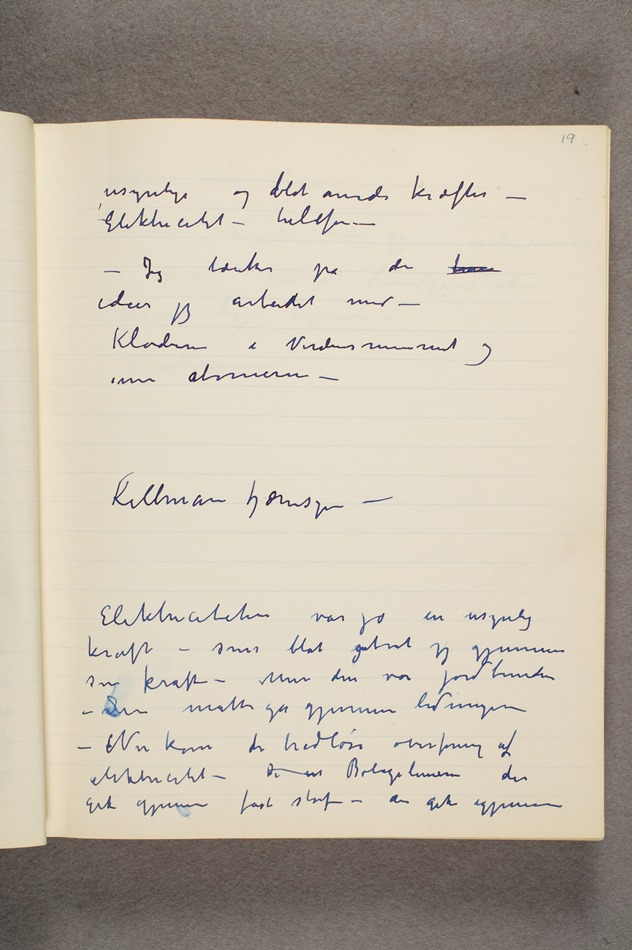 19
usynlige og blot anende kræfter —
Elektricitet — telefon —
— Jeg tænker på de
ideer jeg arbeidet med —
Kloderne i Verdensrummet og
inne atomerne —
Kellmann fjernsyn —
Elektriciteten var jo en usynlig
kraft — som blot gjennem
sin kraft — Men den var jordbunden
— Den måtte gå gjennem ledningen
— Nu kom de trådløse overføring af
elektricitet — Bølgelinierne der
gik gjennem fast stof — de gik igjennem